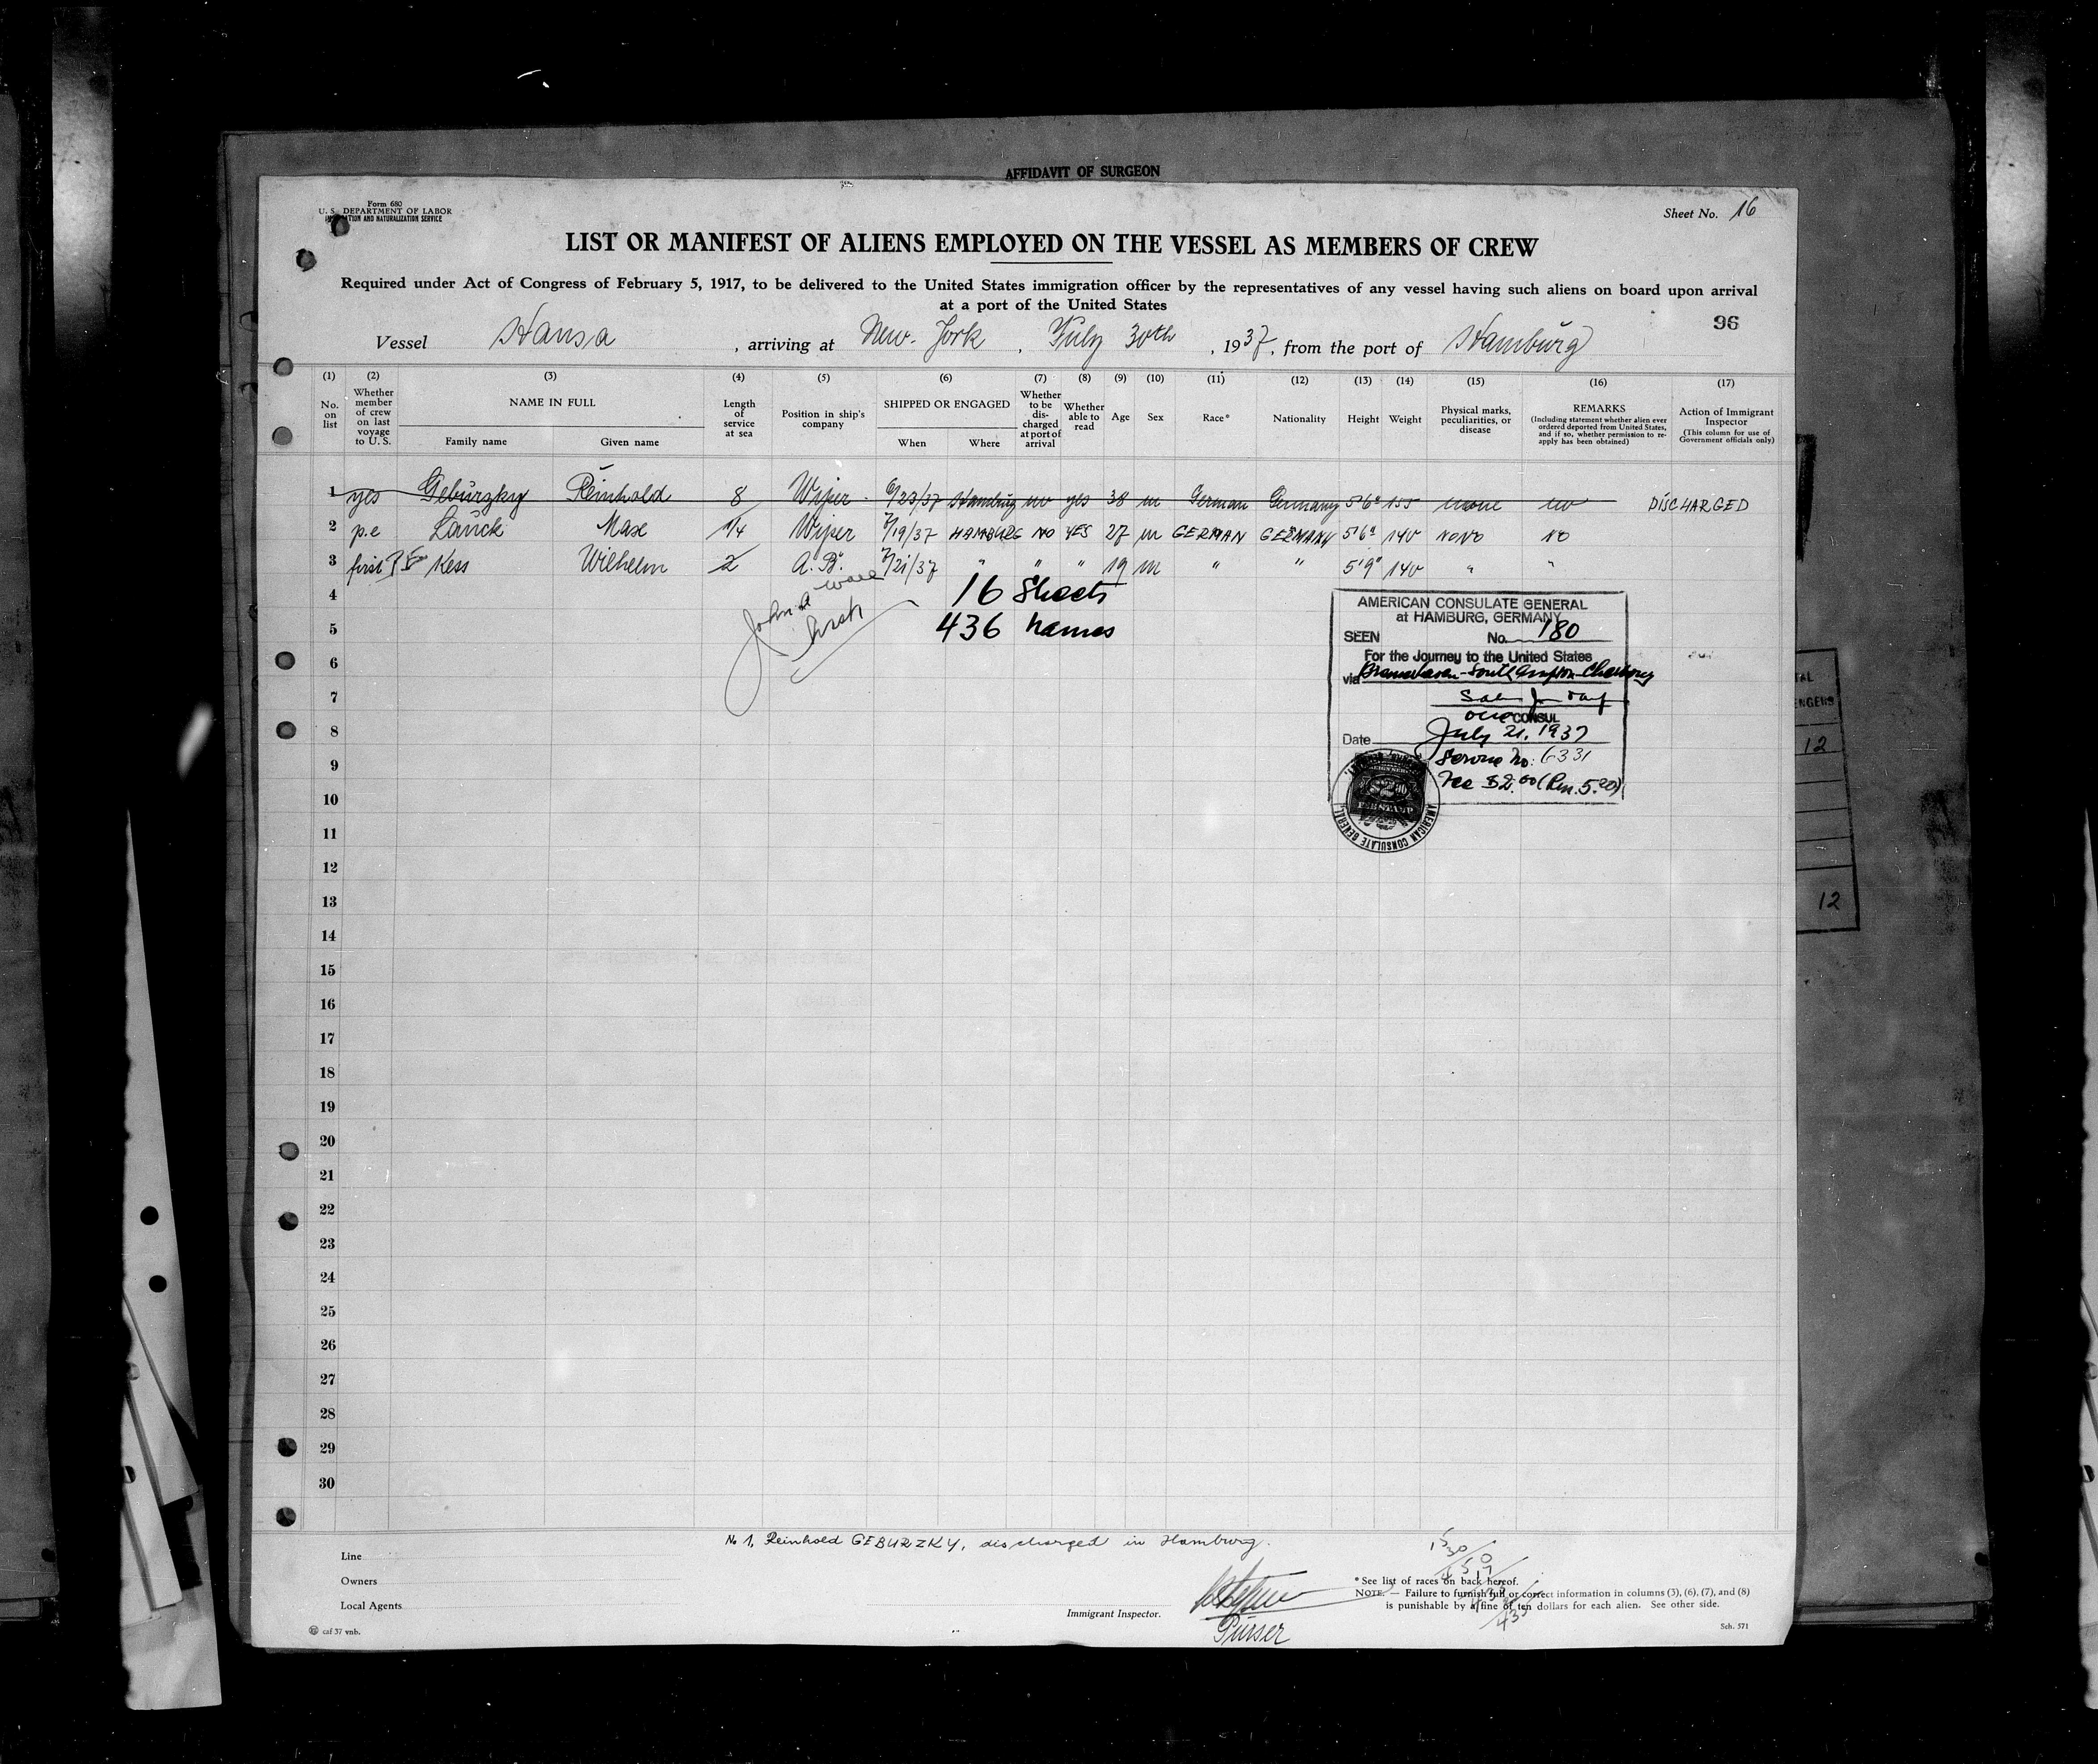 AFFIDAVIT OF SURGEON
Form 680
U. S. DEPARTMENT OF LABOR
IMMIGRATION AND NATURALIZATION SERVICE
Sheet No. 16
LIST OR MANIFEST OF ALIENS EMPLOYED ON THE VESSEL AS MEMBERS OF CREW
Required under Act of Congress of February 5, 1917, to be delivered to the United States immigration officer by the representatives of any vessel having such aliens on board upon arrival
at a port of the United States
96
Vessel Hansa, arriving at New-York, July 30th, 1937, from the port of Hamburg
(1) (2) (3) (4) (5) (6) (7) (8) (9) (10) (11) (12) (13) (14) (15) (16) (17)
No. on list
Whether member of crew on last voyage to U. S.
NAME IN FULL
Family name Given name
Length of service at sea
Position in ship's company
SHIPPED OR ENGAGED
When Where
Whether to be discharged at port of arrival
Whether able to read
Age
Sex
Race*
Nationality
Height
Weight
Physical marks, peculiarities, or disease
REMARKS
(Including statement whether alien ever ordered deported from United States, and if so, whether permission to reapply has been obtained)
Action of Immigrant Inspector
(This column for use of Government officials only)
1 yes Geburzky Reinhold 8 Wiper 6/23/37 Hamburg no yes 38 m German Germany 5'6" 155 none no DISCHARGED
2 p.e Lauck Max 1/4 Wiper 7/19/37 HAMBURG NO YES 27 m GERMAN GERMANY 5'6" 140 NONO NO
3 first Kess Wilhelm 2 A.B. 7/21/37 " " " 19 m " " 5'9" 140 " "
4 16 Sheets
5 436 names
6
7
8
9
10
11
12
13
14
15
16
17
18
19
20
21
22
23
24
25
26
27
28
29
30
AMERICAN CONSULATE GENERAL
at HAMBURG, GERMANY
SEEN No. 180
For the Journey to the United States
via Bremerhaven-Southampton-Cherbourg
CONSUL
Date July 21, 1937
Service No: 6331
Fee $2.00 (Rm. 5.20)
AMERICAN CONSULATE GENERAL
No 1, Reinhold GEBURZKY, discharged in Hamburg.
Line
Owners
Local Agents
Immigrant Inspector.
Purser
* See list of races on back hereof.
NOTE. — Failure to furnish full or correct information in columns (3), (6), (7), and (8)
is punishable by a fine of ten dollars for each alien. See other side.
caf 37 vnb.
Sch. 571
12
12